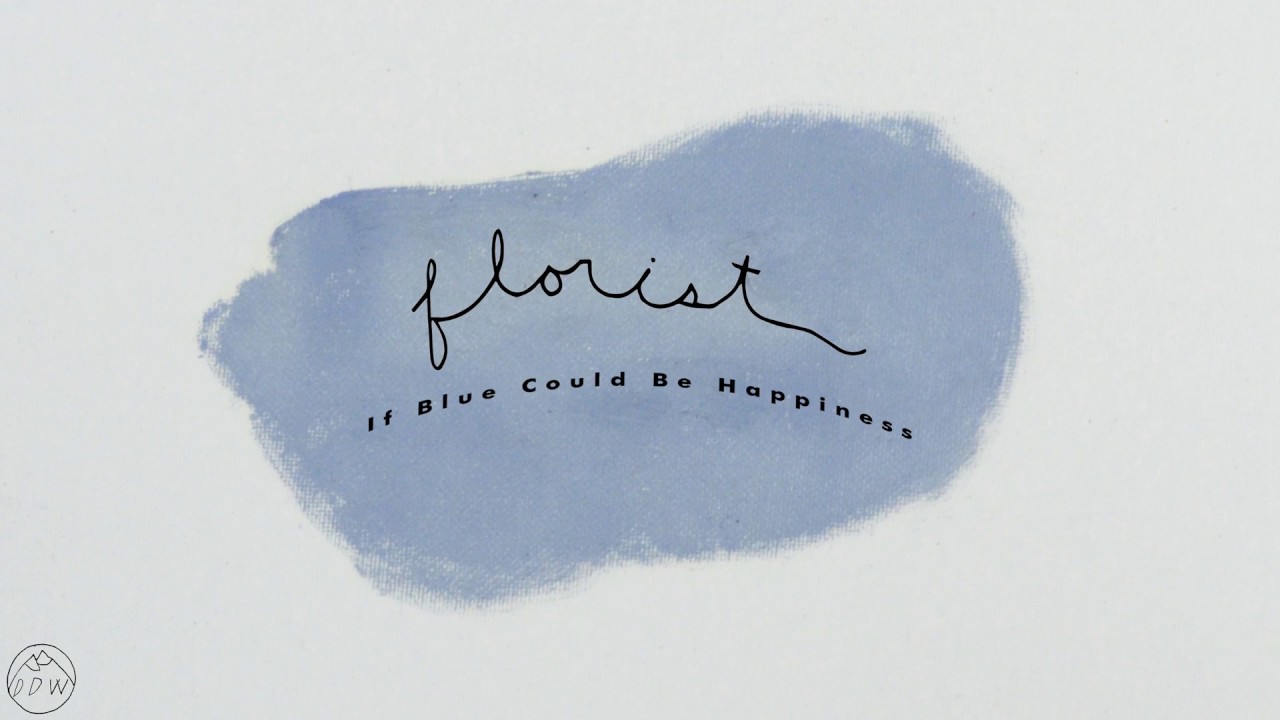 florist
If Blue Could Be Happiness
DDW